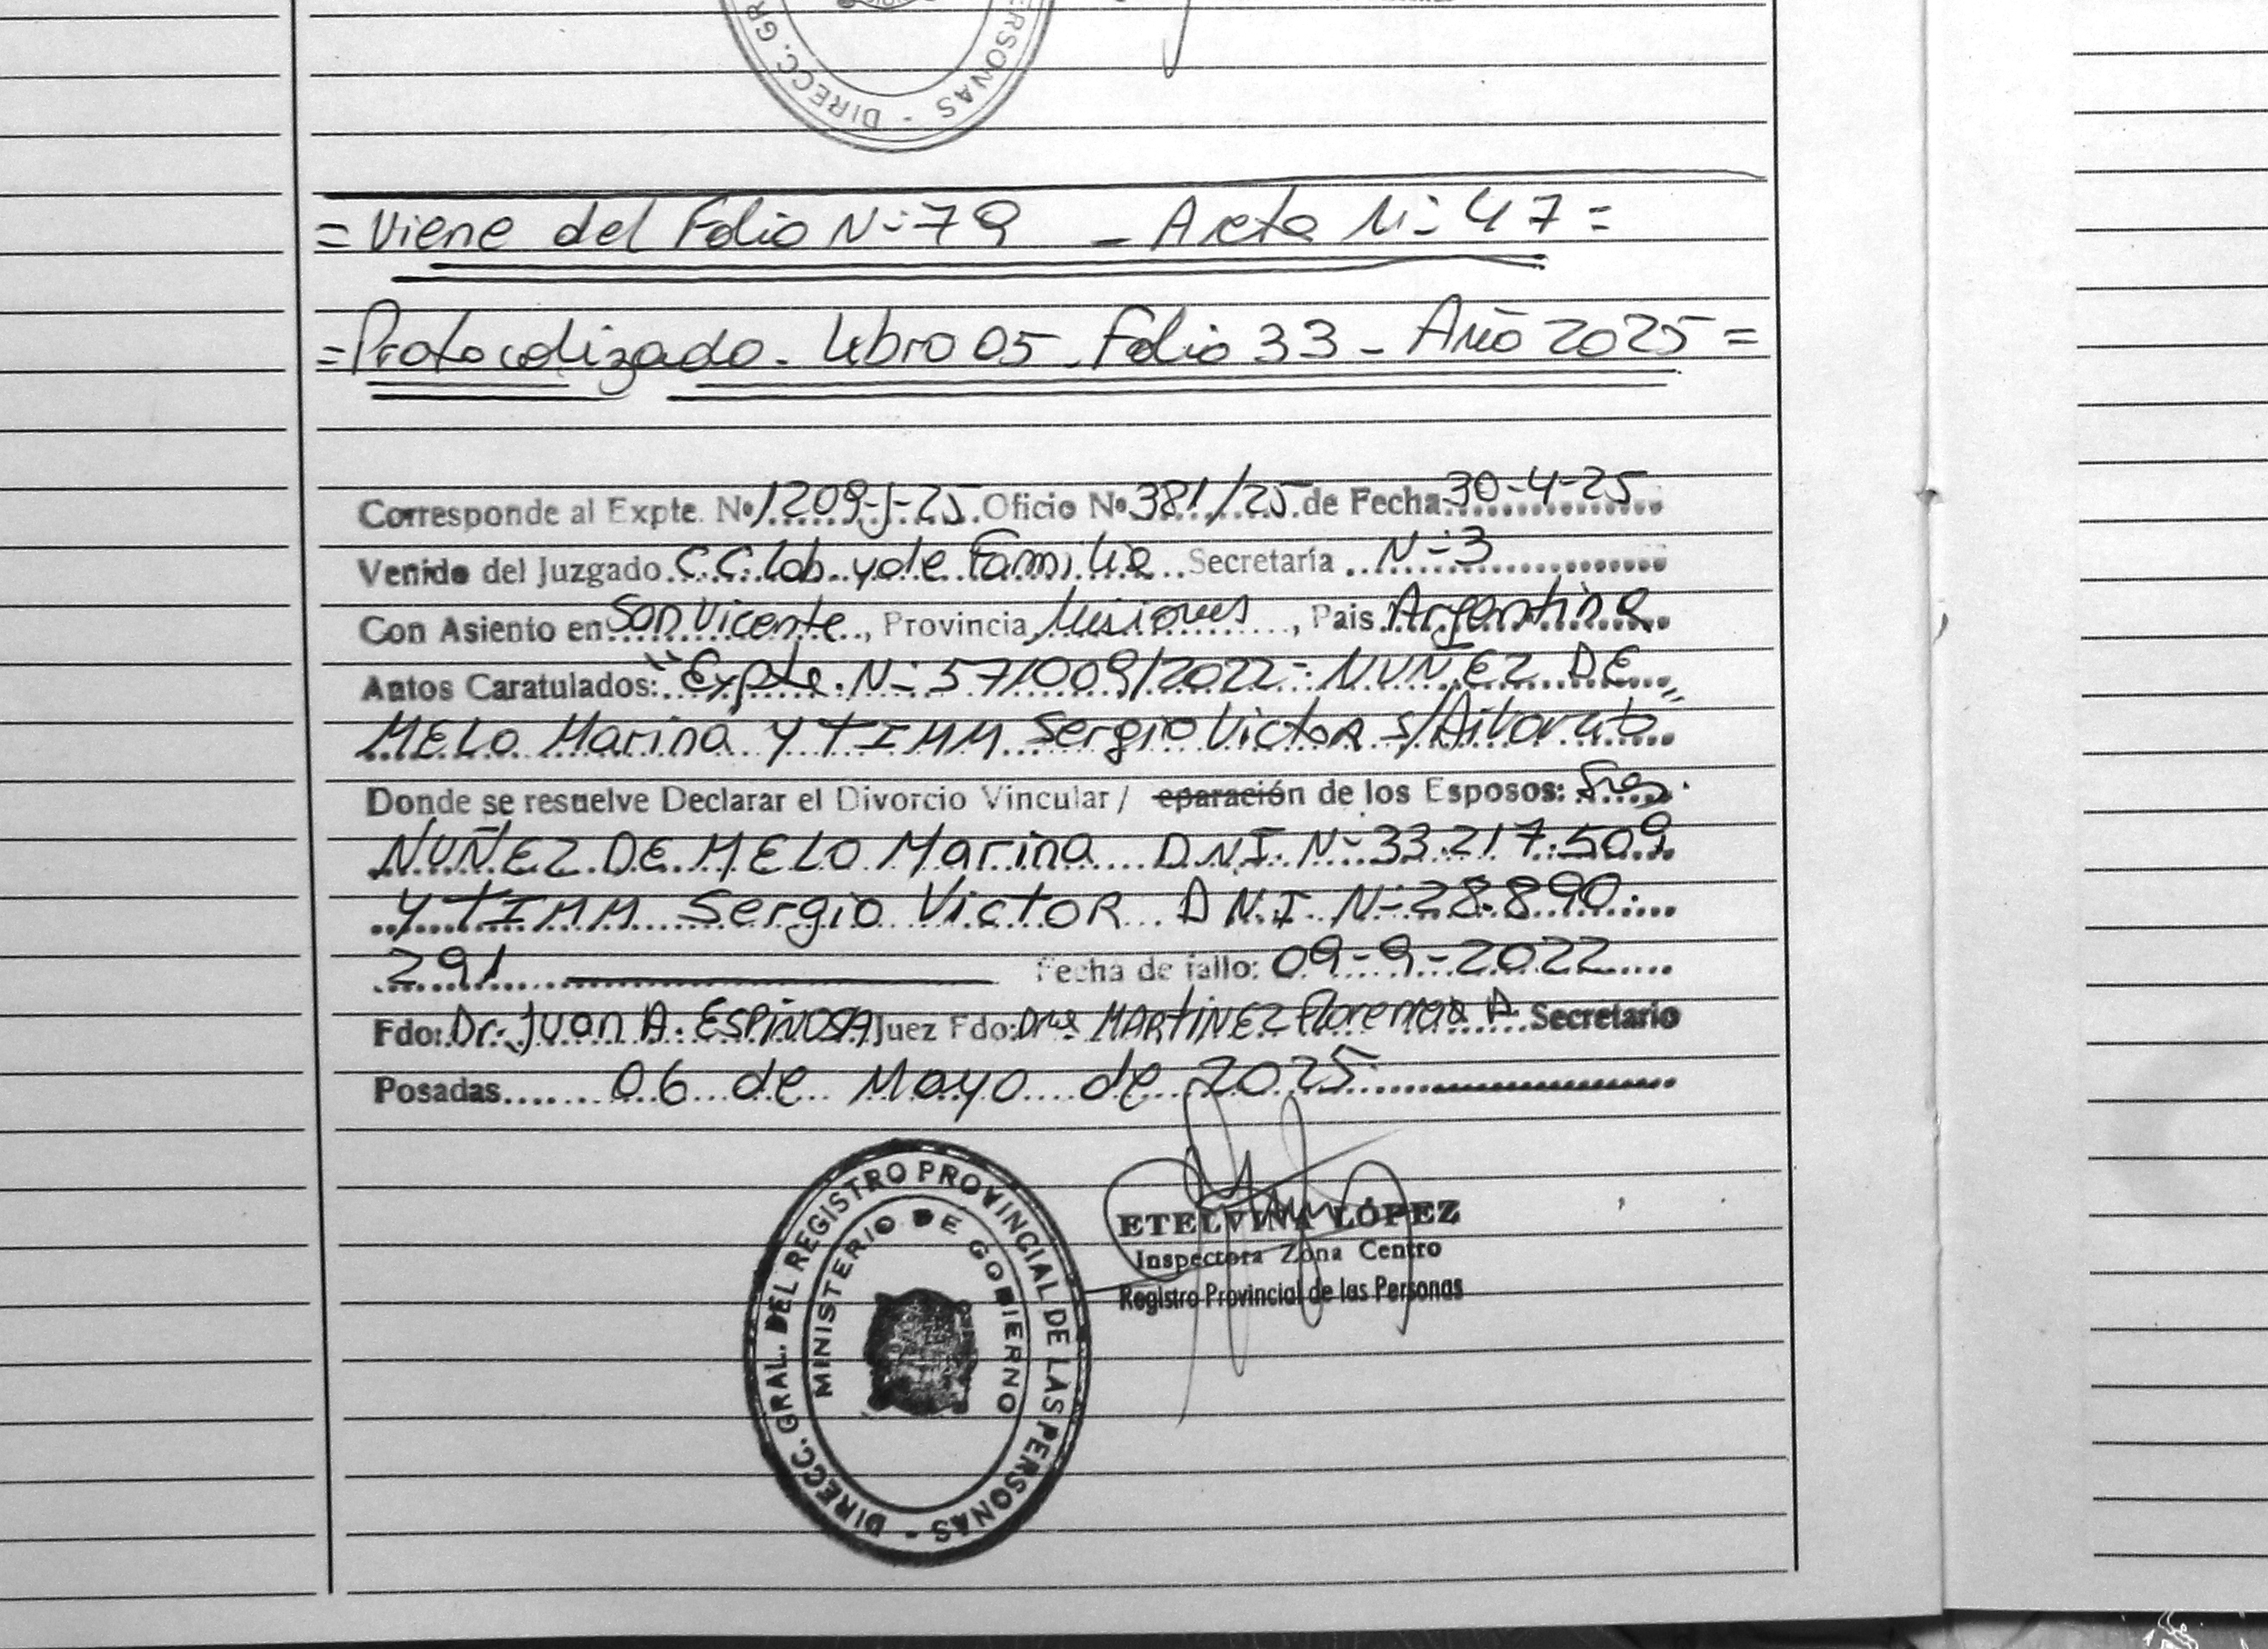 DIRECC. GR ERSONAS -
= Viene del Folio N-79 - Acta N- 47 =
= Protocolizado - Libro 05 - Folio 33 - Año 2025 =
Corresponde al Expte. Nº 1209-J-25 Oficio Nº 381/25 de Fecha 30-4-25
Venido del Juzgado C.C. Lab. y de Familia Secretaría N-3
Con Asiento en San Vicente, Provincia Misiones, Pais Argentina
Autos Caratulados: "Expte. N- 57009/2022 - NUÑEZ DE
MELO Marina Y TIMM Sergio Victor s/Divorcio"
Donde se resuelve Declarar el Divorcio Vincular / eparación de los Esposos: Sres.
NUÑEZ DE MELO Marina D.N.I. N- 33.217.509
Y TIMM Sergio Victor D.N.I. N- 28.890.
291 Fecha de fallo: 09-9-2022
Fdo: Dr. Juan A. ESPINOSA Juez Fdo: Dra MARTINEZ Florencia A. Secretario
Posadas 06 de Mayo de 2025
DIRECC. GRAL. DEL REGISTRO PROVINCIAL DE LAS PERSONAS -
MINISTERIO DE GOBIERNO
ETELVINA LÓPEZ
Inspectora Zona Centro
Registro Provincial de las Personas